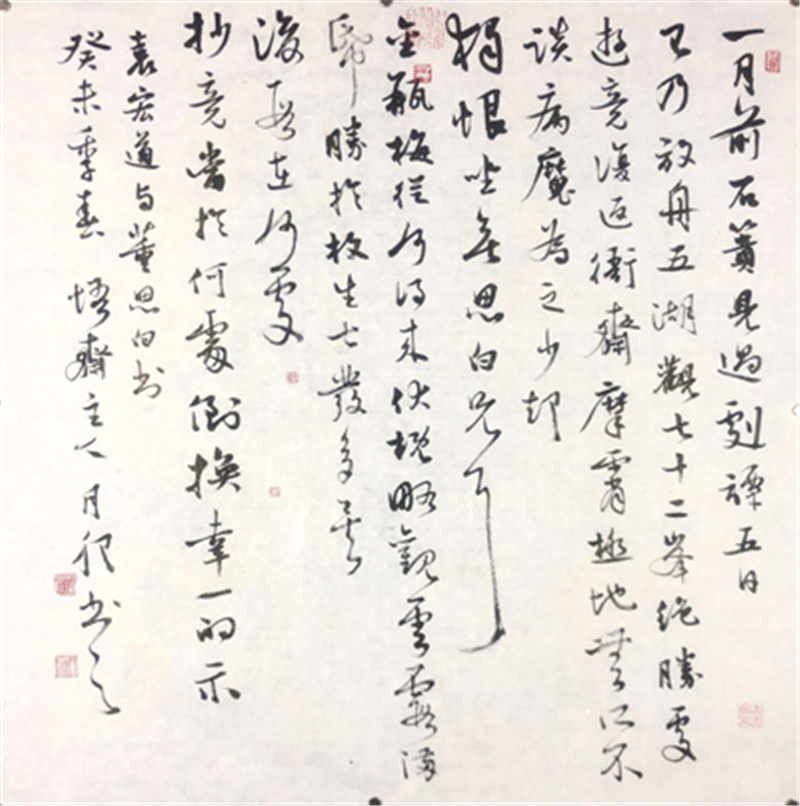 一月前石簣見過劇譚五日
已乃放舟五湖觀七十二峯絕勝處
遊竟復返衙齋摩霄極地無所不
談病魔為之少却
獨恨坐無思白兄耳
金瓶梅從何得來伏枕略觀雲霞滿
紙勝於枚生七發多矣
後段在何處
抄竟當於何處倒換幸一的示
袁宏道與董思白書
癸未季春 悟齋主人月書之